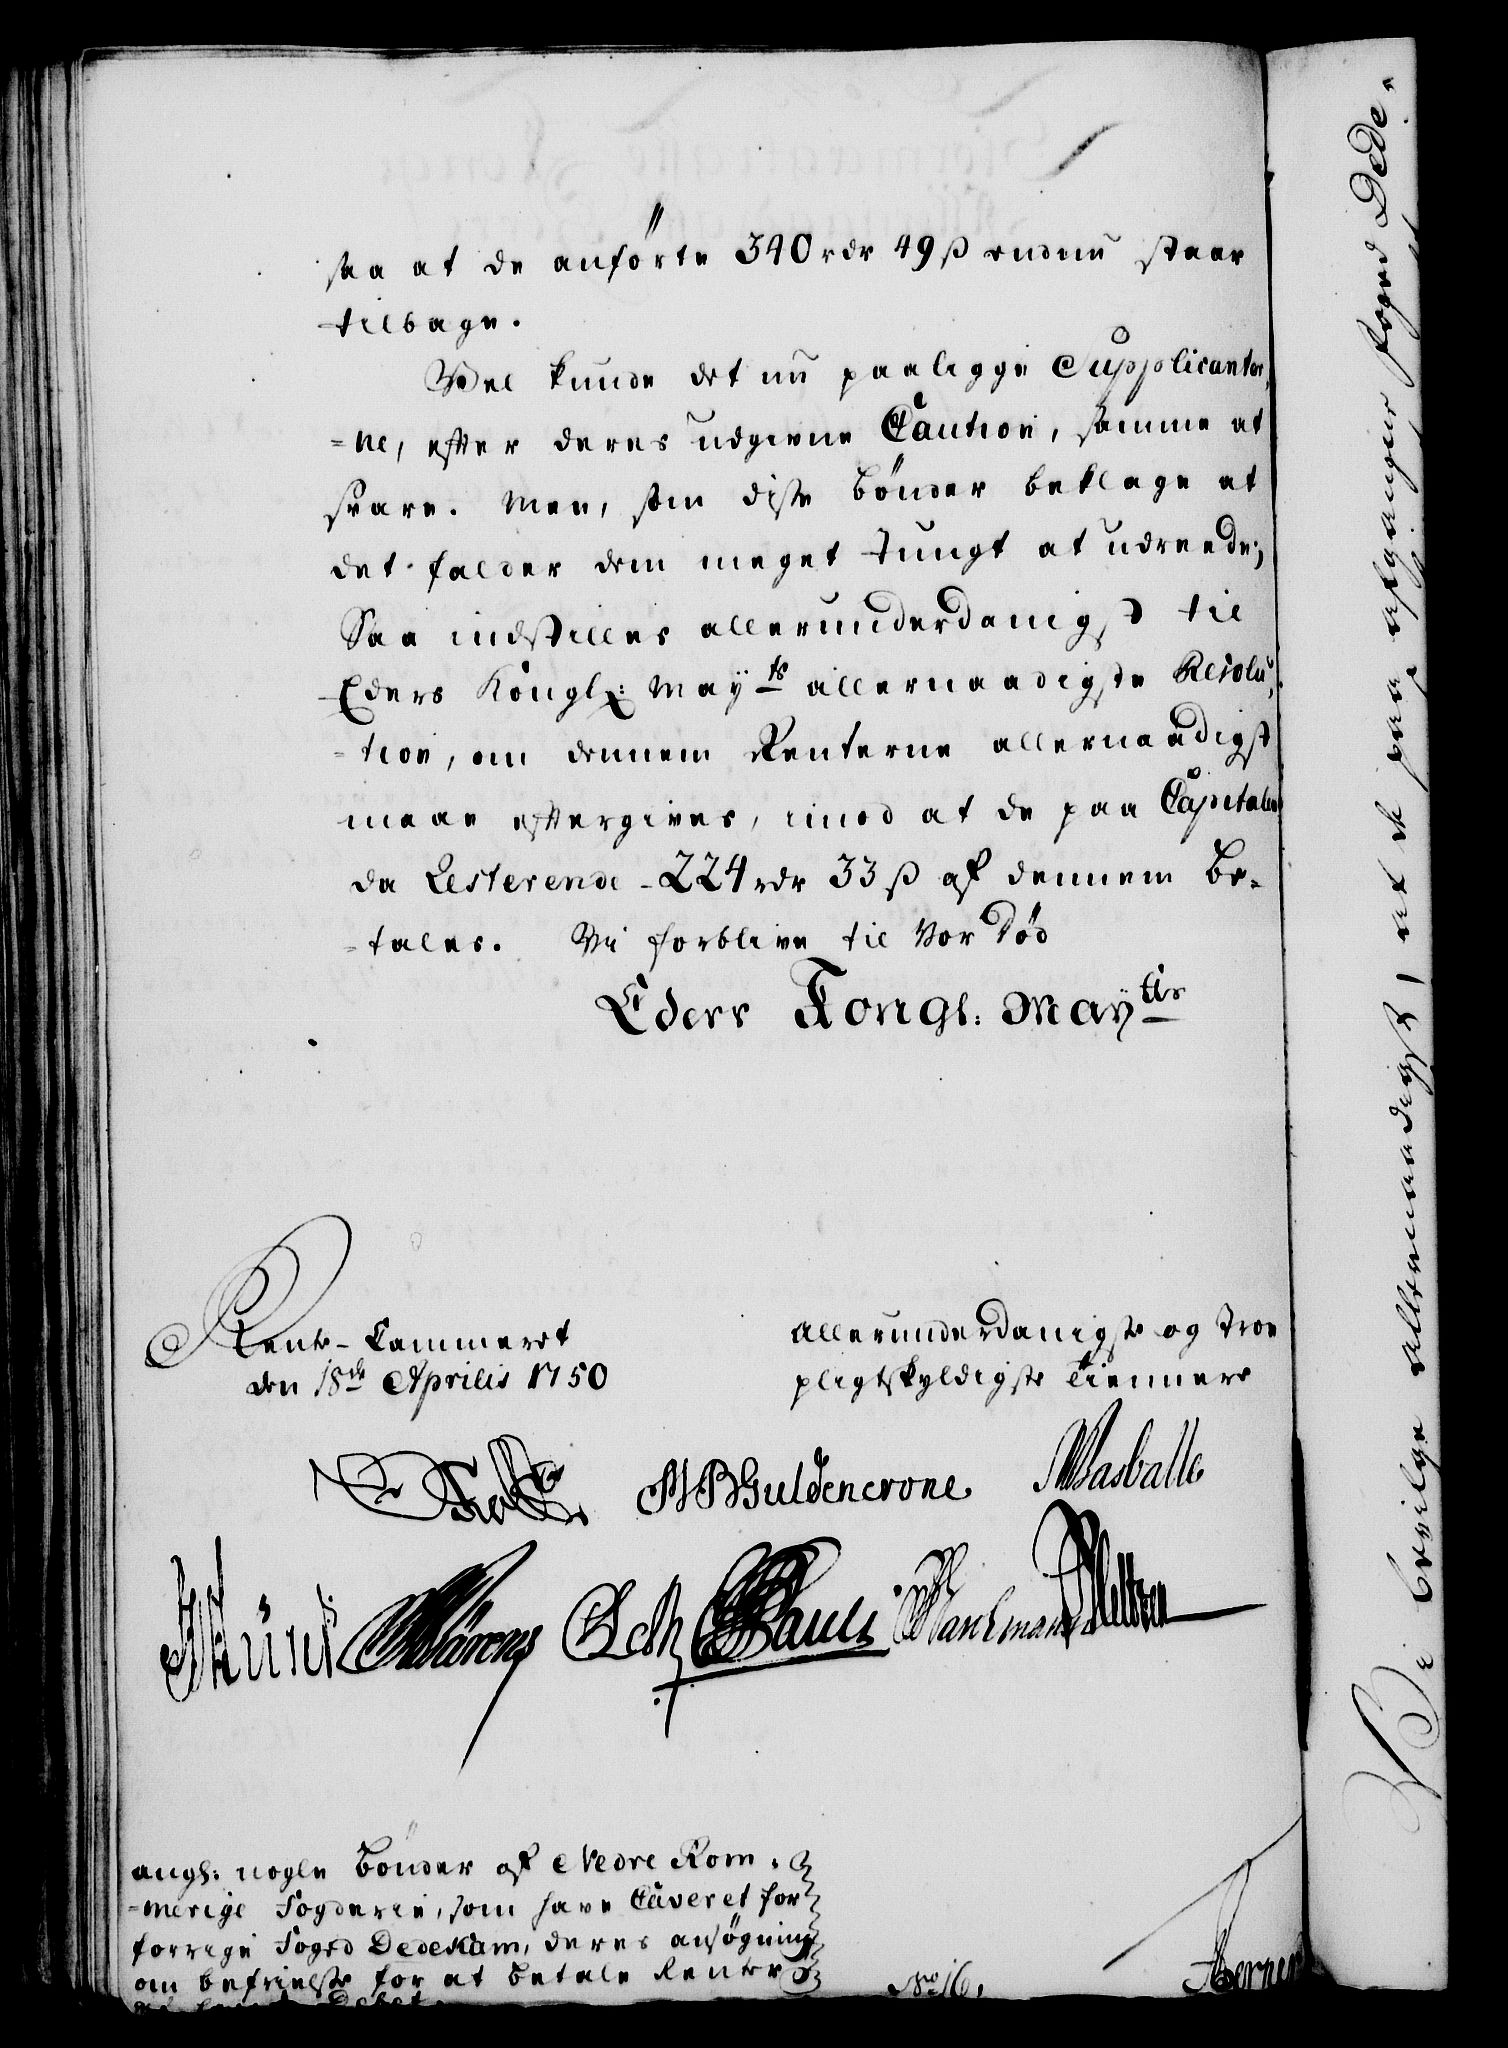 saa at de anførte 340 rdr 49 ß endnu staar
tilbage.
Vel kunde det nu paaligge Supplicanter,
=ne, efter deres udgivne Caution, samme at
svare. Men, som disse bønder beklage at
det falder dem meget tungt at udreede;
Saa indstilles allerunderdanigst til
Eders Kongl: Mayts allernaadigste Resolu,
=tion, om dennem Renterne allernaadigst
maae eftergives, imod at de paa Capitalen
da Resterende 224 rdr 33 ß af dennem be-
=tales. Vi forblive til Vor Død
Eders Kongl: Mayttes
Rente-Cammeret
den 18de Aprilis 1750
allerunderdanigste og troe
pligtskyldigste Tiennere
MBGuldencrone
Pauli
angl: nogle bønder af Nedre Rom,
=merige Fogderie, som have Caveret for
forrige Foged Dedekam, deres ansøgning
om befrielse for at betale Renter
No 16,
Vi bevilge allernaadigst, at de paa afgangne foged Dede.